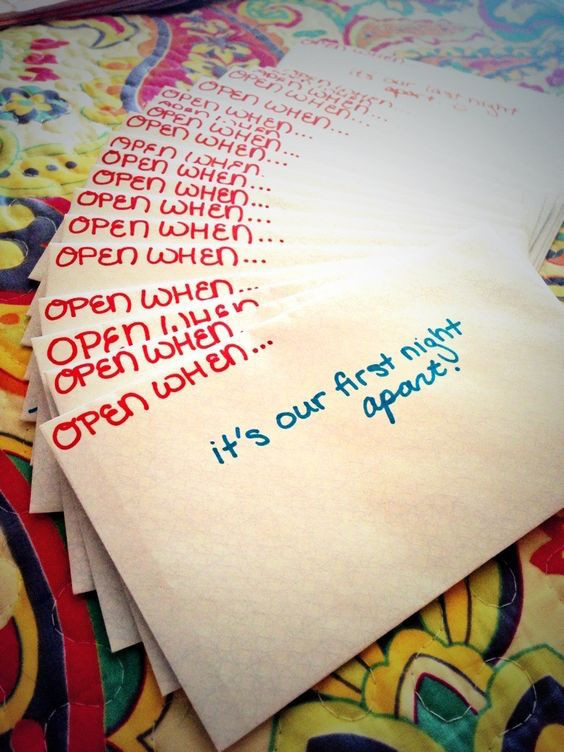 OPEN WHEN
it's our last night
apart
OPEN WHEN...
OPEN WHEN...
OPEN WHEN...
OPEN WHEN...
OPEN WHEN...
OPEN WHEN...
OPEN WHEN
OPEN WHEN...
OPEN WHEN...
OPEN WHEN...
OPEN WHEN...
OPEN WHEN...
OPEN WHEN...
OPEN WHEN
OPEN WHEN...
OPEN WHEN...
it's our first night
apart!